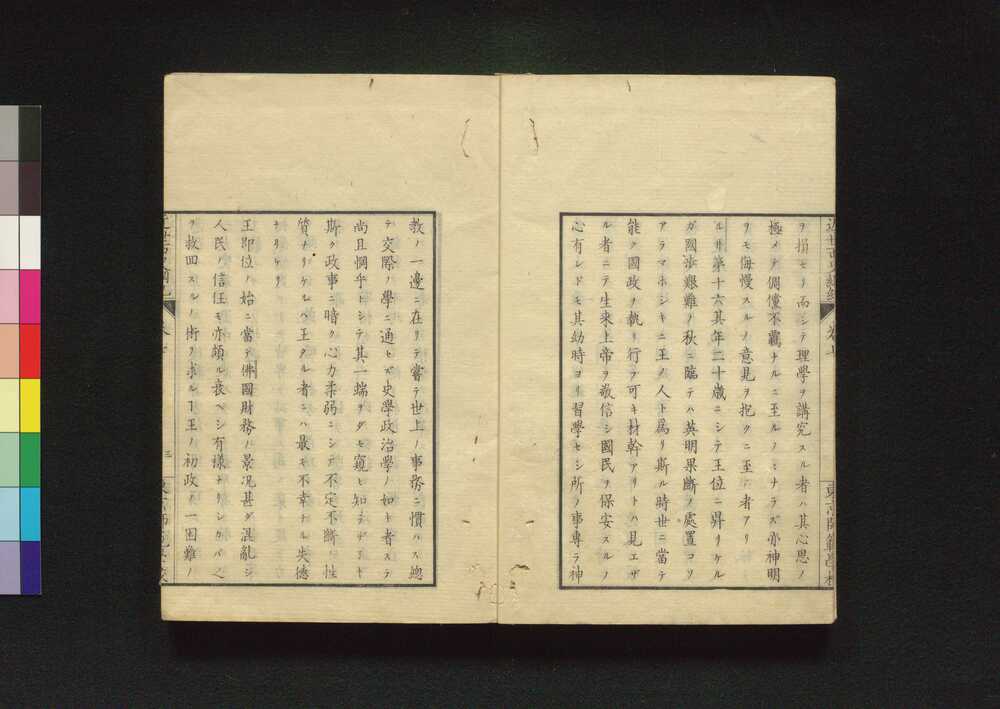 ヲ損セリ而シテ理學ヲ講究スル者ハ其心思ノ
極メテ倜儻不羈ナルニ至ルノミナラズ亦神明
ヲモ侮慢スルノ意見ヲ抱クニ至ル者アリ
ルイ第十六其年二十歳ニシテ王位ニ昇リケル
ガ國歩艱難ノ秋ニ臨テハ英明果斷ノ處置コソ
アラマホシキニ王ノ人ト爲リ斯ル時世ニ當テ
能ク國政ヲ執リ行フ可キ材幹アリトハ見エザ
ル者ニテ生來上帝ヲ敬信シ國民ヲ保安スルノ
心有レドモ其幼時ヨリ習學セシ所ノ事專ラ神
東京師範學校
教ノ一邊ニ在リテ嘗テ世上ノ事務ニ慣ハス總
テ交際ノ學ニ通セズ史學政治學ノ如キ者スラ
尚且惘乎トシテ其一端ヲダモ窺ヒ知ラザヿト
斯ク政事ニ暗ク心力柔弱ニシテ不定不斷ノ性
質ナリケレバ王タル者ニハ最モ不幸ナル失德
ナリケリ
王即位ノ始ニ當テ佛國財務ノ景况甚ダ混亂シ
人民ノ信任モ亦頗ル衰ヘシ有樣ナリシカバ之
ヲ救回スルノ術ヲ求ルヿ王ノ初政ノ一困難ノ
三